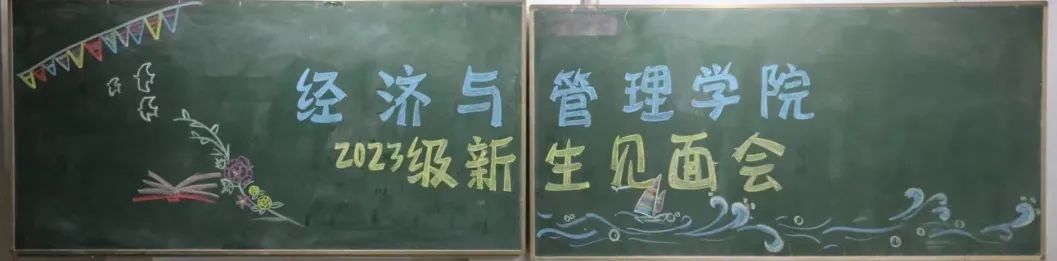 经济与管理学院
2023级新生见面会